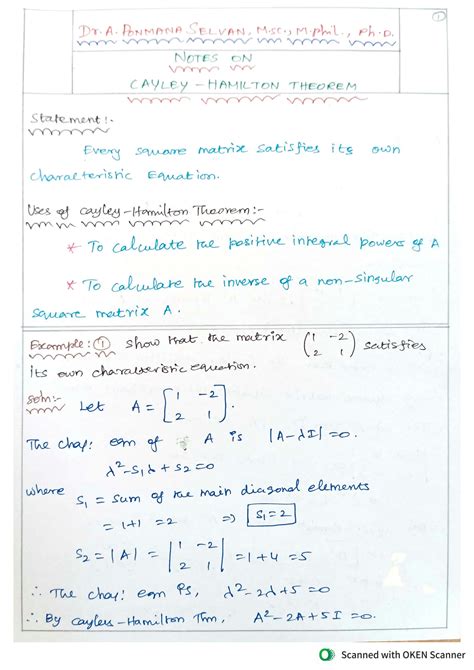 ①
Dr. A. PONMANA SELVAN, M.Sc., M.phil., Ph.D.
NOTES ON
CAYLEY - HAMILTON THEOREM
Statement:-
Every square matrix satisfies its own
characteristic Equation.
Uses of Cayley-Hamilton Theorem:-
* To calculate the positive integral powers of A
* To calculate the inverse of a non-singular
square matrix A.
Example: ① Show that the matrix (1 -2
2 1) satisfies
its own characteristic equation.
Soln:- Let A = [1 -2
2 1].
The char: eqn of A is |A-λI|=0.
λ²-S₁λ+S₂=0
where S₁ = sum of the main diagonal elements
= 1+1 = 2 ⇒ S₁=2
S₂ = |A| = |1 -2
2 1| = 1+4 = 5
∴ The char: eqn is, λ²-2λ+5=0
∴ By Cayley-Hamilton Thm, A²-2A+5I=0.
Scanned with OKEN Scanner